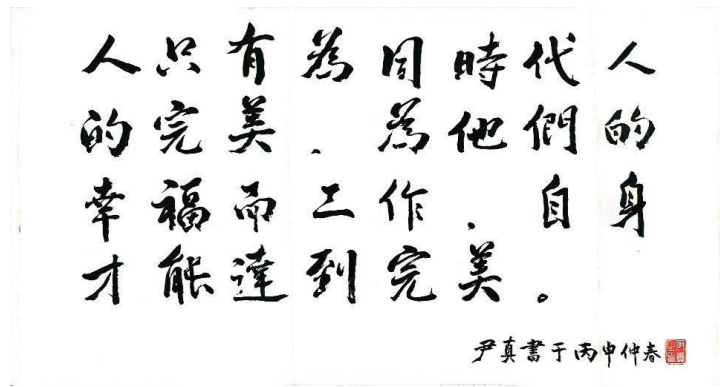 人只有為同時代人
的完美、為他們的
幸福而工作、自身
才能達到完美。
尹真書于丙申仲春